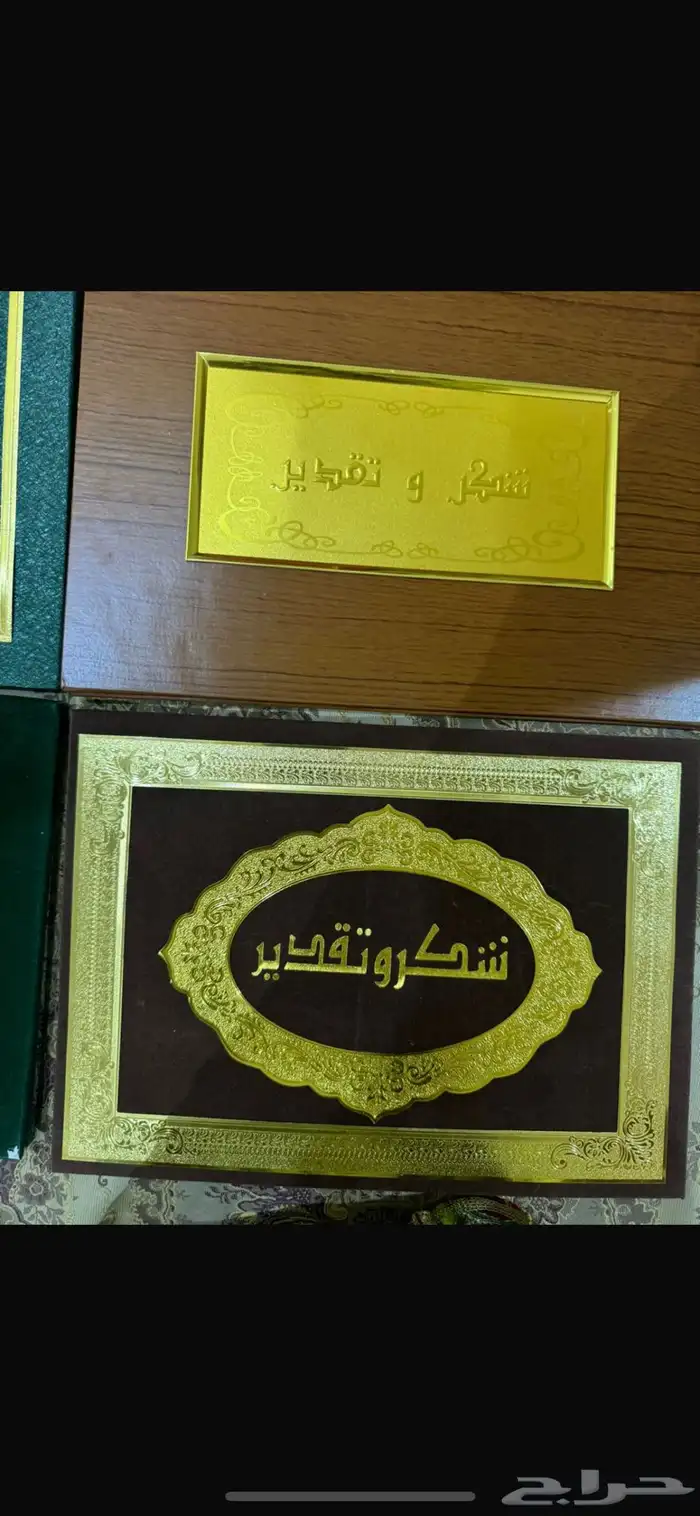 شكر و تقدير
شكر وتقدير
حراج